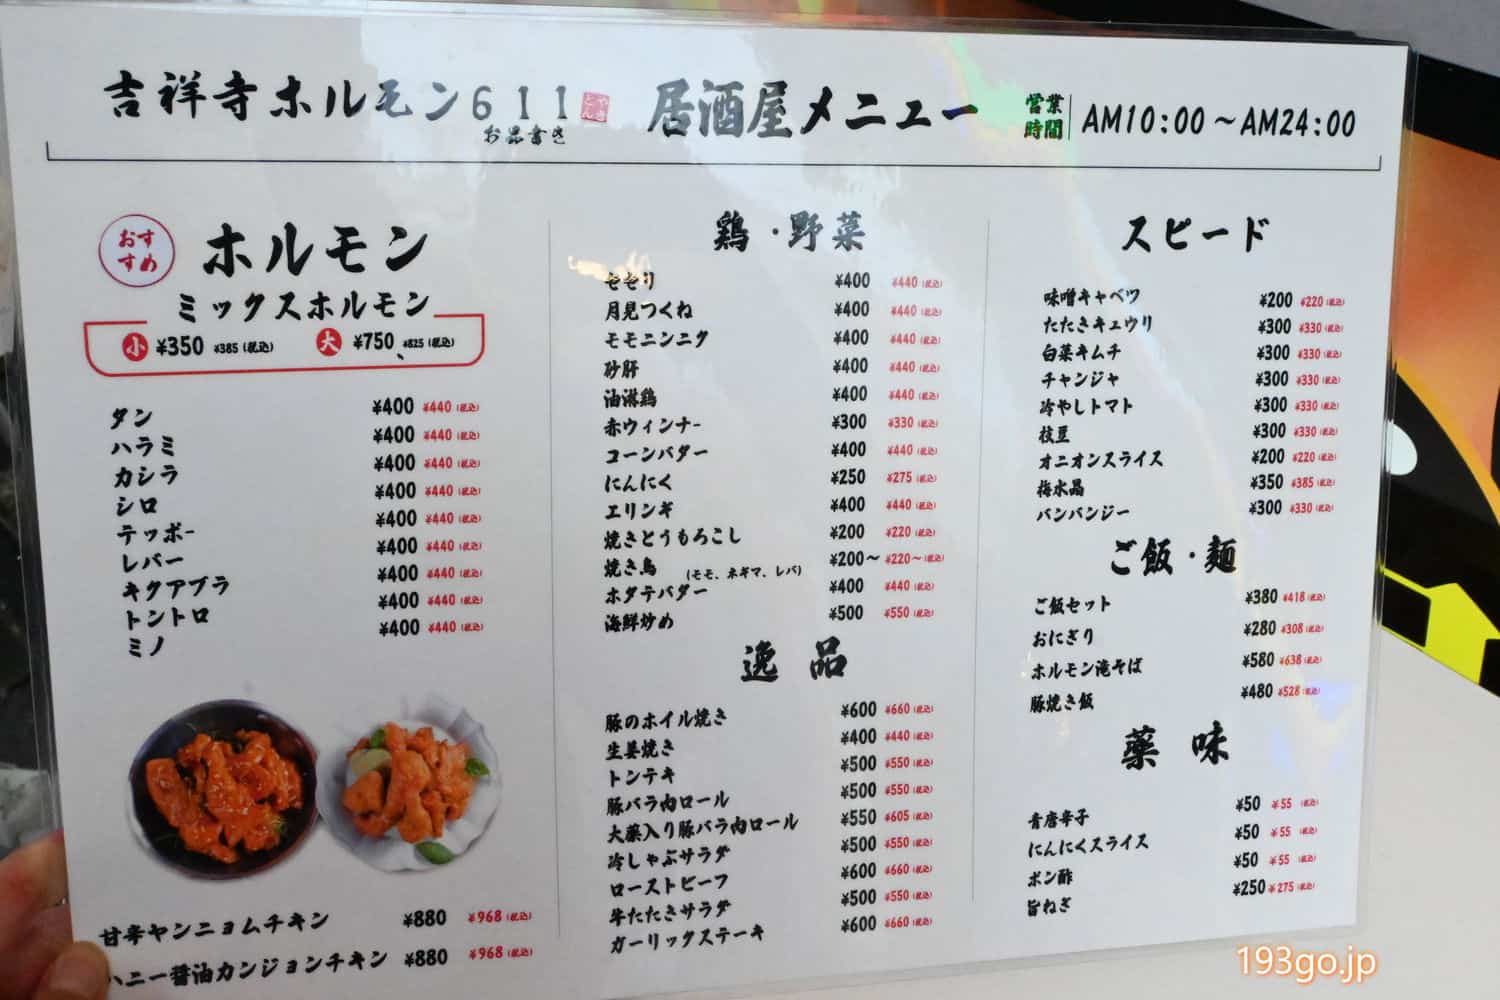 吉祥寺ホルモン611 やきとん 居酒屋メニュー 営業時間 AM10:00～AM24:00
お品書き
おすすめ ホルモン
ミックスホルモン
小 ¥350 ¥385(税込) 大 ¥750 ¥825(税込)
タン ¥400 ¥440(税込)
ハラミ ¥400 ¥440(税込)
カシラ ¥400 ¥440(税込)
シロ ¥400 ¥440(税込)
テッポー ¥400 ¥440(税込)
レバー ¥400 ¥440(税込)
キクアブラ ¥400 ¥440(税込)
トントロ ¥400 ¥440(税込)
ミノ ¥400 ¥440(税込)
甘辛ヤンニョムチキン ¥880 ¥968(税込)
ハニー醤油カンジョンチキン ¥880 ¥968(税込)
鶏・野菜
せせり ¥400 ¥440(税込)
月見つくね ¥400 ¥440(税込)
モモニンニク ¥400 ¥440(税込)
砂肝 ¥400 ¥440(税込)
油淋鶏 ¥400 ¥440(税込)
赤ウィンナー ¥300 ¥330(税込)
コーンバター ¥400 ¥440(税込)
にんにく ¥250 ¥275(税込)
エリンギ ¥400 ¥440(税込)
焼きとうもろこし ¥200 ¥220(税込)
焼き鳥 (モモ、ネギマ、レバ) ¥200～ ¥220～(税込)
ホタテバター ¥400 ¥440(税込)
海鮮炒め ¥500 ¥550(税込)
逸品
豚のホイル焼き ¥600 ¥660(税込)
生姜焼き ¥400 ¥440(税込)
トンテキ ¥500 ¥550(税込)
豚バラ肉ロール ¥500 ¥550(税込)
大葉入り豚バラ肉ロール ¥550 ¥605(税込)
冷しゃぶサラダ ¥500 ¥550(税込)
ローストビーフ ¥600 ¥660(税込)
牛たたきサラダ ¥500 ¥550(税込)
ガーリックステーキ ¥600 ¥660(税込)
スピード
味噌キャベツ ¥200 ¥220(税込)
たたきキュウリ ¥300 ¥330(税込)
白菜キムチ ¥300 ¥330(税込)
チャンジャ ¥300 ¥330(税込)
冷やしトマト ¥300 ¥330(税込)
枝豆 ¥300 ¥330(税込)
オニオンスライス ¥200 ¥220(税込)
梅水晶 ¥350 ¥385(税込)
バンバンジー ¥300 ¥330(税込)
ご飯・麺
ご飯セット ¥380 ¥418(税込)
おにぎり ¥280 ¥308(税込)
ホルモン滝そば ¥580 ¥638(税込)
豚焼き飯 ¥480 ¥528(税込)
薬味
青唐辛子 ¥50 ¥55(税込)
にんにくスライス ¥50 ¥55(税込)
ポン酢 ¥50 ¥55(税込)
旨ねぎ ¥250 ¥275(税込)
193go.jp